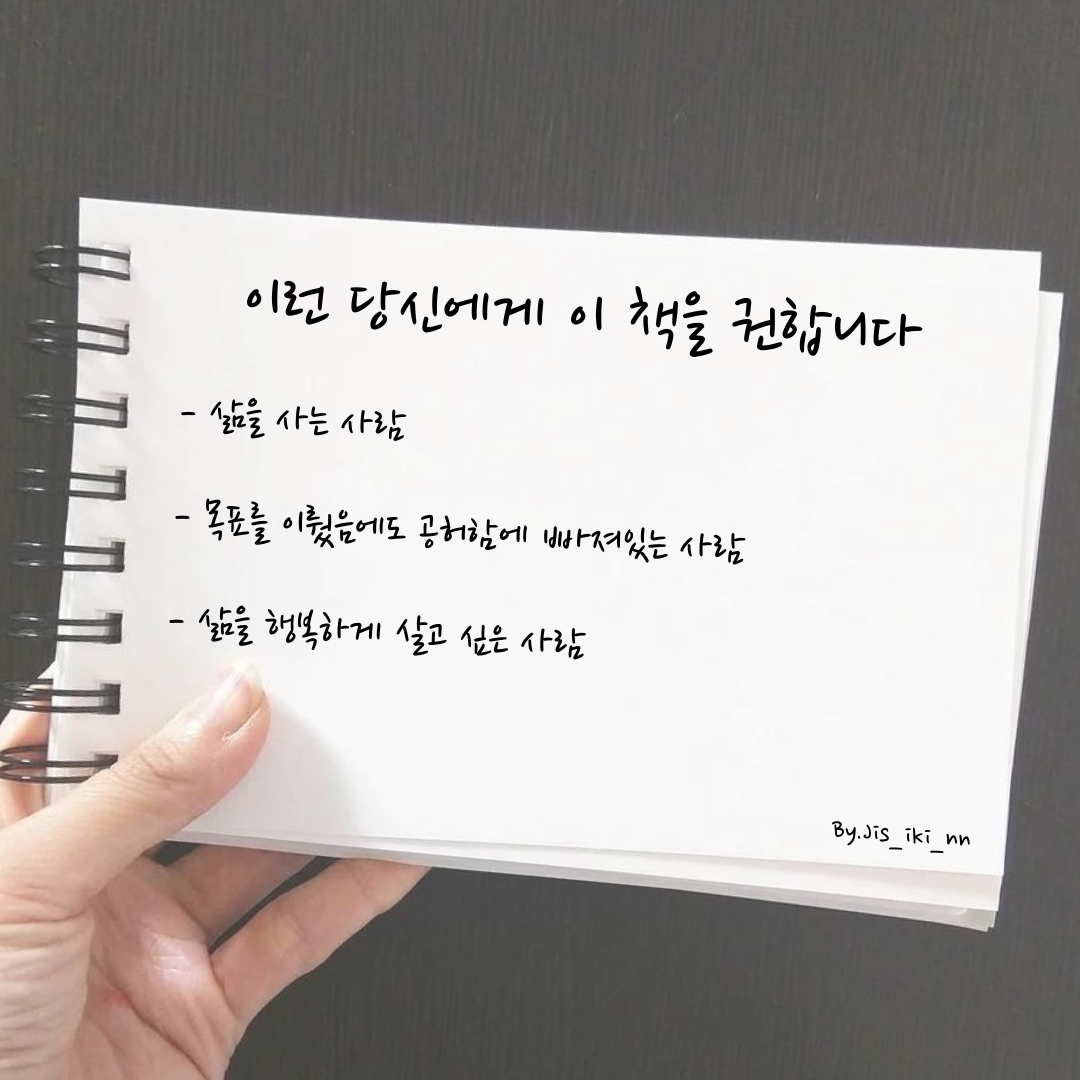 이런 당신에게 이 책을 권합니다
- 삶을 사는 사람
- 목표를 이뤘음에도 공허함에 빠져있는 사람
- 삶을 행복하게 살고 싶은 사람
By.Jis_iki_nn